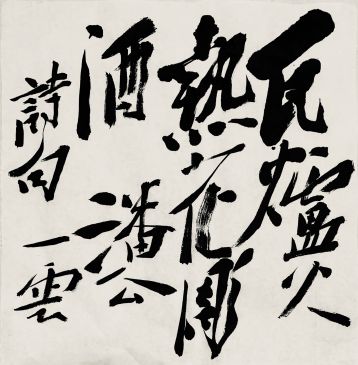 瓦爐火
熱花彫
酒潘公
詩句一雲